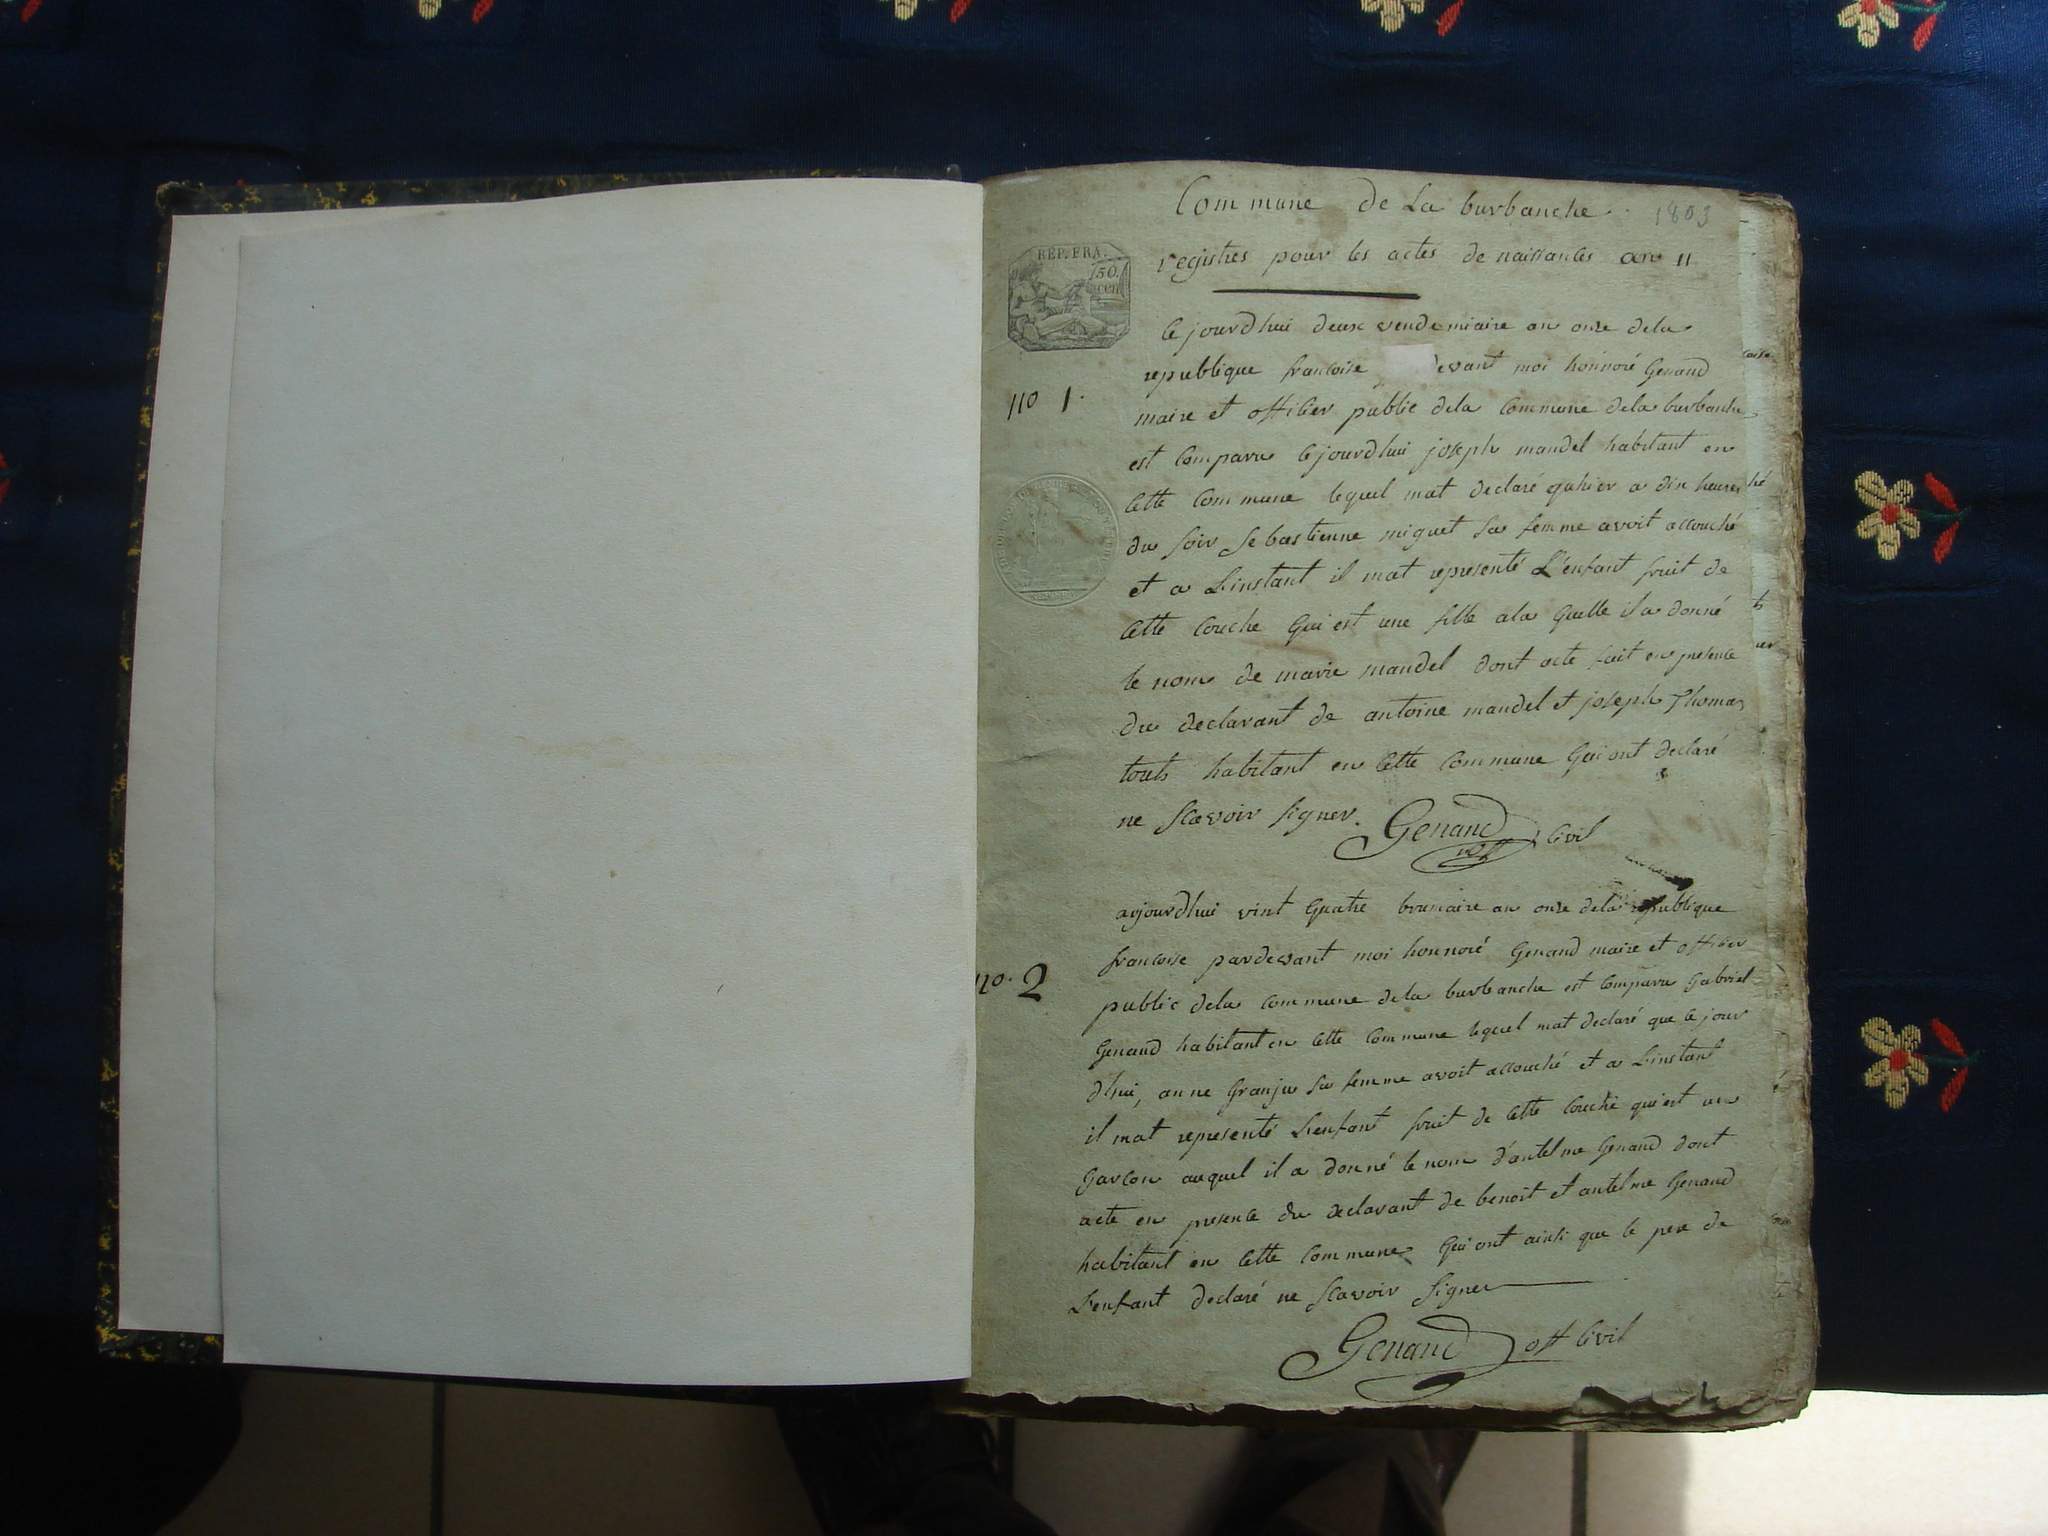 Commune de La burbanche
1803
registres pour les actes de naissances an 11
REP. FRA.
50.
cen
no 1.
Cejourdhui deux vendemiaire an onze dela
republique francoise devant moi honnoré Genand
maire et officier public dela Commune dela burbanche
est Comparu Cejourdhui joseph mandel habitant en
Cette Commune lequel mat declaré qu'hier a dix heures
du soir Sebastienne miguet sa femme avoit accouché
et a L'instant il mat representé L'enfant fruit de
Cette Couche Qui est une fille ala Quelle il a donné
le nom de marie mandel dont acte fait en presence
du declarant de antoine mandel et joseph Thomas
touts habitant en Cette Commune Qui ont declaré
ne Scavoir signer.
Genand off Civil
no. 2
aujourdhui vint Quatre brumaire an onze dela republique
francoise pardevant moi honnoré Genand maire et officier
public dela Commune dela burbanche est Comparu Gabriel
Genand habitant en Cette Commune lequel mat declaré que Cejour
dhui, anne Granju sa femme avoit accouché et a L'instant
il mat representé L'enfant fruit de Cette Couche qui est un
Garcon auquel il a donné le nom d'antelme Genand dont
acte en presence du declarant de benoit et antelme Genand
habitant en Cette Commune Qui ont ainsi que le pere de
L'enfant declaré ne Scavoir Signer
Genand off Civil